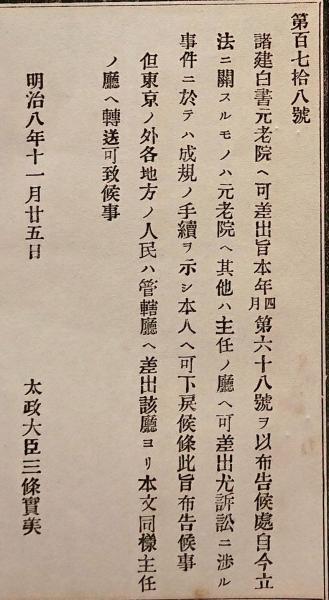 第百七拾八號
諸建白書元老院ヘ可差出旨本年四月第六十八號ヲ以布告候處自今立
法ニ關スルモノハ元老院ヘ其他ハ主任ノ廳ヘ可差出尤訴訟ニ渉ル
事件ニ於テハ成規ノ手續ヲ示シ本人ヘ可下戻候條此旨布告候事
但東京ノ外各地方ノ人民ハ管轄廳ヘ差出該廳ヨリ本文同樣主任
ノ廳ヘ轉送可致候事
明治八年十一月廿五日
太政大臣三條實美